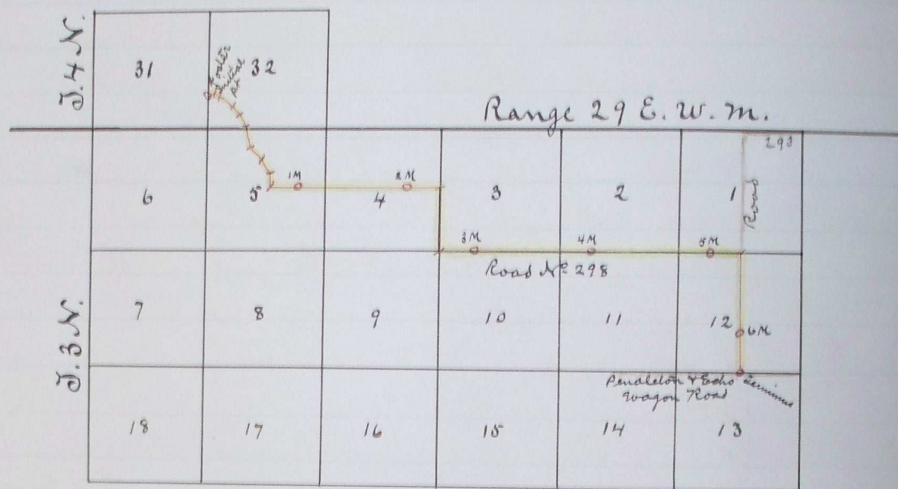 T. 4 N.
31
32
Range 29 E. W. m.
293
6
5
1M
2M
4
3
2
1
Road
3M
4M
5M
Road No 298
T. 3 N.
7
8
9
10
11
12
6M
Pendleton & Echo
Wagon Road
Terminus
18
17
16
15
14
13